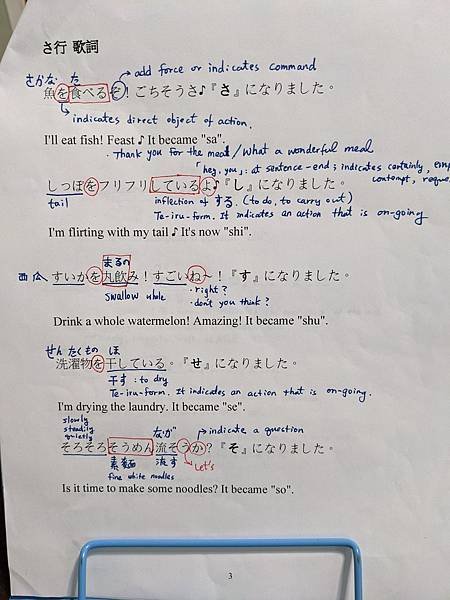 さ行 歌詞
さかな た add force or indicates command
魚を食べるぞ！ごちそうさ♪『さ』になりました。
indicates direct object of action.
I'll eat fish! Feast ♪ It became "sa".
· Thank you for the meal / What a wonderful meal
「hey, you」: at sentence-end; indicates certainty, emp
contempt, reque
しっぽをフリフリしているよ♪『し』になりました。
tail
inflection of する. (to do, to carry out)
Te-iru-form. It indicates an action that is on-going
I'm flirting with my tail ♪ It's now "shi".
まるの
西瓜 すいかを丸飲み！すごいね～！『す』になりました。
swallow whole
· right?
· don't you think?
Drink a whole watermelon! Amazing! It became "shu".
せんたくもの ほ
洗濯物を干している。『せ』になりました。
干す: to dry
Te-iru-form. It indicates an action that is on-going.
I'm drying the laundry. It became "se".
slowly
steadily
quietly
なが indicate a question
そろそろそうめん流そうか？『そ』になりました。
素麺 流す Let's
fine white noodles
Is it time to make some noodles? It became "so".
3